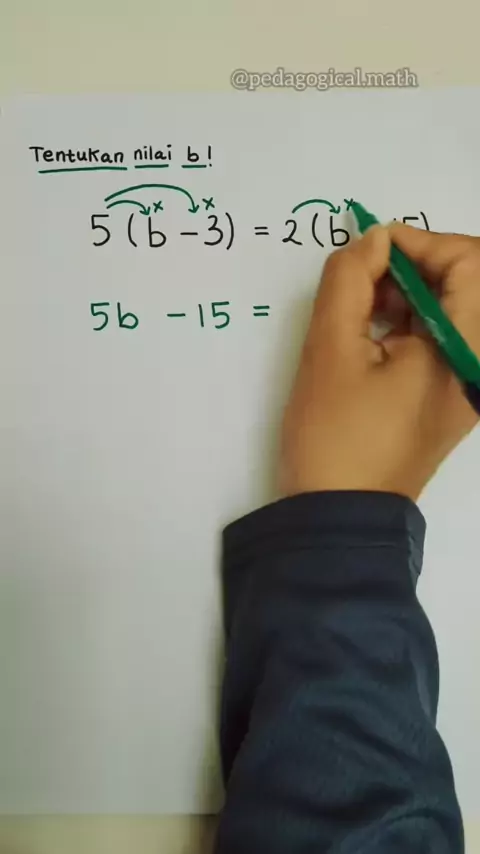 @pedagogical.math
Tentukan nilai b!
5 (b - 3) = 2 (b
5b - 15 =